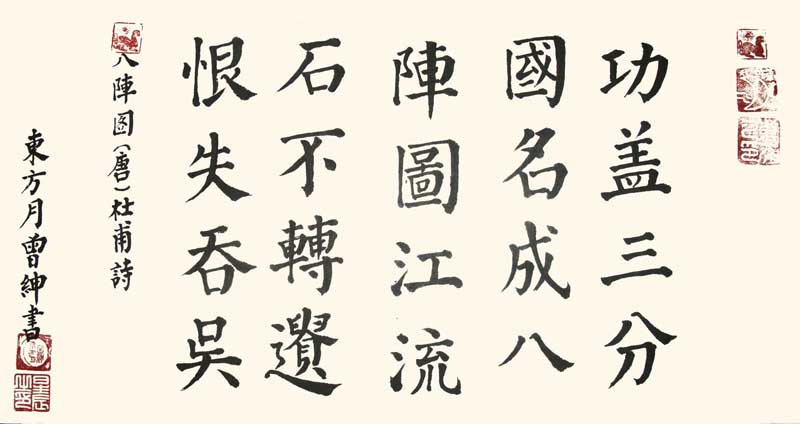 功盖三分
國名成八
陣圖江流
石不轉遺
恨失吞吳
八陣图(唐)杜甫詩
東方月曾紳書